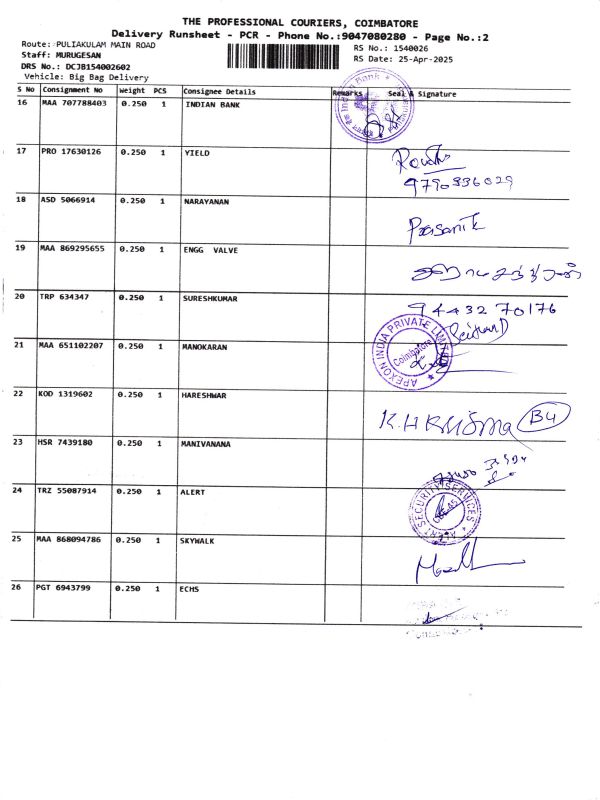 THE PROFESSIONAL COURIERS, COIMBATORE
Delivery Runsheet - PCR - Phone No.:9047080280 - Page No.:2
Route: PULIAKULAM MAIN ROAD
RS No.: 1540026
Staff: MURUGESAN
RS Date: 25-Apr-2025
DRS No.: DCJB154002602
Vehicle: Big Bag Delivery
S No Consignment No Weight PCS Consignee Details Remarks Seal & Signature
16 MAA 707788403 0.250 1 INDIAN BANK
17 PRO 17630126 0.250 1 YIELD
9790336029
18 ASD 5066914 0.250 1 NARAYANAN
19 MAA 869295655 0.250 1 ENGG VALVE
20 TRP 634347 0.250 1 SURESHKUMAR
9443270176
APEXON INDIA PRIVATE LIMITED
Coimbatore
21 MAA 651102207 0.250 1 MANOKARAN
22 KOD 1319602 0.250 1 HARESHWAR
K.H B4
23 HSR 7439180 0.250 1 MANIVANANA
24 TRZ 55087914 0.250 1 ALERT
ALERT SECURITY SERVICES
CBE-45
25 MAA 868094786 0.250 1 SKYWALK
26 PGT 6943799 0.250 1 ECHS